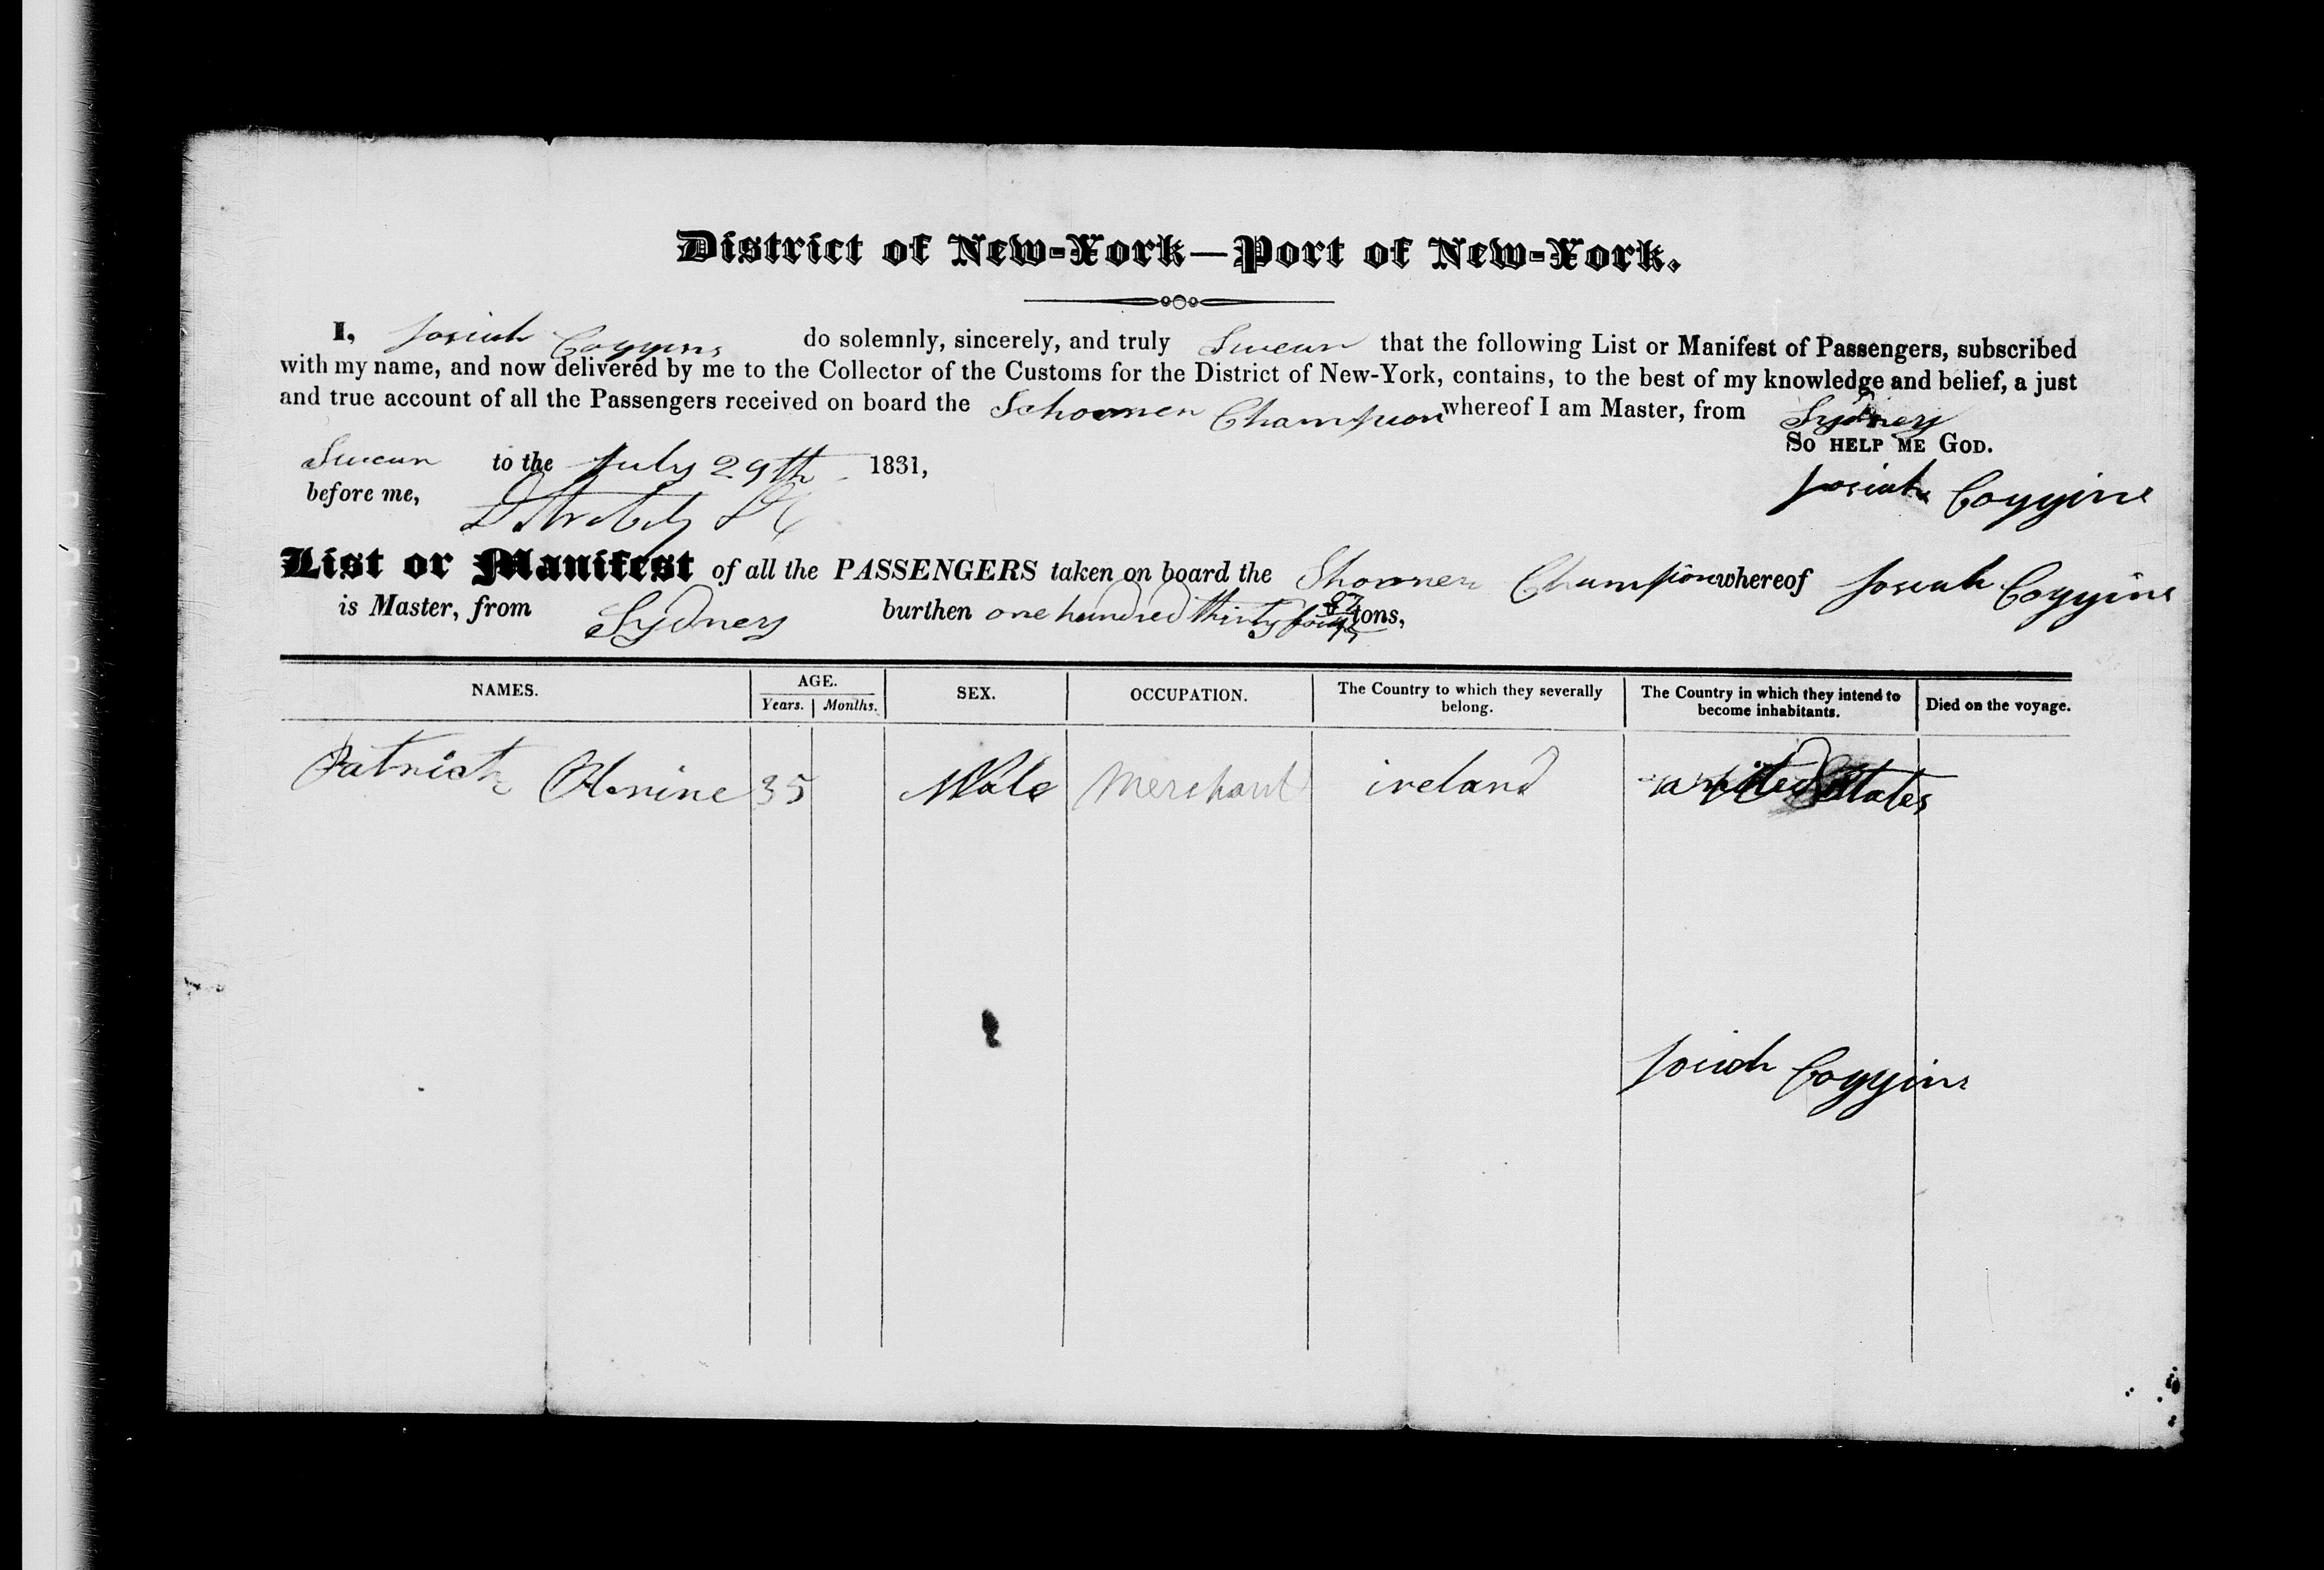 District of New-York—Port of New-York.
I, Josiah Coggins do solemnly, sincerely, and truly Swear that the following List or Manifest of Passengers, subscribed
with my name, and now delivered by me to the Collector of the Customs for the District of New-York, contains, to the best of my knowledge and belief, a just
and true account of all the Passengers received on board the Schooner Champion whereof I am Master, from Sydney
So help me God.
Swear to the July 29th 1831,
before me,
Josiah Coggins
List or Manifest of all the PASSENGERS taken on board the Shooner Champion whereof Josiah Coggins
is Master, from Sydney burthen one hundred thirty four tons,
NAMES. AGE. SEX. OCCUPATION. The Country to which they severally belong. The Country in which they intend to become inhabitants. Died on the voyage.
Years. Months.
Patrick 35 Male Merchant ireland united States
Josiah Coggins